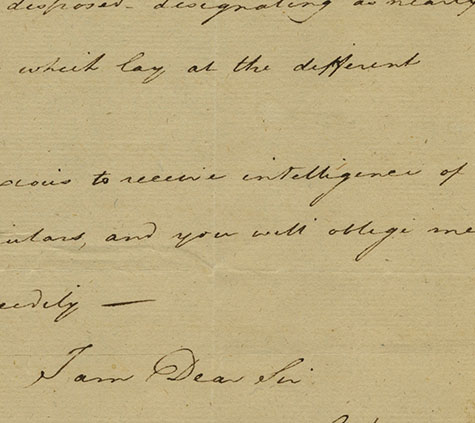 disposed - designating as nearly
which lay at the different
to receive intelligence of
and you will oblige me
I am Dear Sir